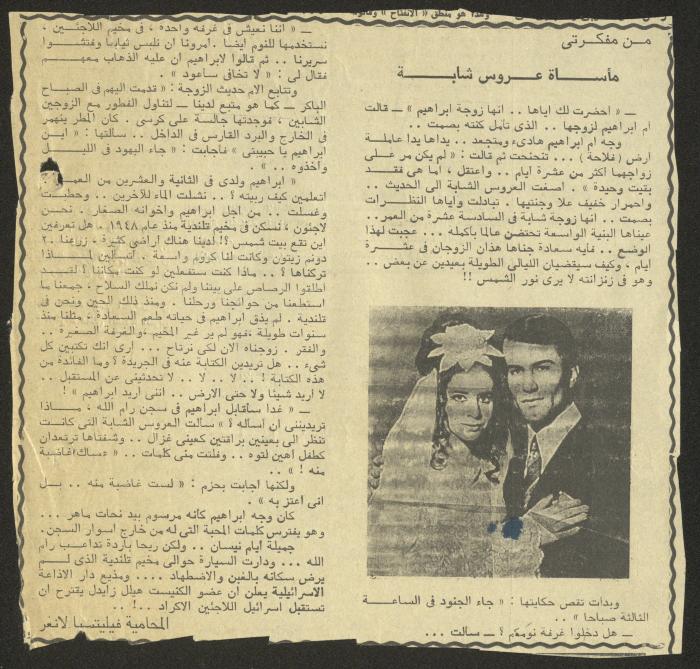 من مفكرتى
مأساة عروس شابة
— « احضرت لك اياها .. انها زوجة ابراهيم » — قالت
ام ابراهيم لزوجها .. الذى تأمل كنته بصمت ..
وجه ام ابراهيم هادىء ومتجعد .. يداها يدا عاملة
ارض (فلاحة) ... تنحنحت ثم قالت : « لم يكن مر على
زواجهما اكثر من عشرة ايام .. واعتقل ، اما هى فقد
بقيت وحيدة » . اصغت العروس الشابة الى الحديث ..
واحمرار خفيف علا وجنتيها . تبادلت واياها النظرات
بصمت .. انها زوجة شابة فى السادسة عشرة من العمر..
عيناها البنية الواسعة تحتضن عالما باكمله ... عجبت لهذا
الوضع .. فأيه سعادة جناها هذان الزوجان فى عشرة
ايام ، وكيف سيقضيان الليالى الطويلة بعيدين عن بعض ..
وهو فى زنزانته لا يرى نور الشمس !!
وبدات تقص حكايتها : « جاء الجنود فى الساعة
الثالثة صباحا » ..
— هل دخلوا غرفة نومكم ؟ — سالت ...
— « اننا نعيش فى غرفة واحدة ، فى مخيم اللاجئين .
نستخدمها للنوم ايضا . امرونا ان نلبس ثيابنا وفتشوا
سريرنا .. ثم قالوا لابراهيم ان عليه الذهاب معهم
فقال لى : « لا تخافى ساعود » .
وتتابع الام حديث الزوجة : « قدمت اليهم فى الصباح
الباكر — كما هو متبع لدينا — لتناول الفطور مع الزوجين
الشابين ، فوجدتها جالسة على كرسى . كان المطر ينهمر
فى الخارج والبرد القارس فى الداخل .. سالتها : « اين
ابراهيم يا حبيبتى » فأجابت : « جاء اليهود فى الليل
وأخذوه .. » .
« ابراهيم ولدى فى الثانية والعشرين من
اتعلمين كيف ربيته ؟ .. نشلت الماء للآخرين .. وحطبت
وغسلت .. من اجل ابراهيم واخوانه الصغار . نحن
لاجئون ، نسكن فى مخيم قلندية منذ عام ١٩٤٨ . هل تعرفين
اين تقع بيت شمس ؟! لدينا هناك اراضى كثيرة . زرعنا ٢٠
دونم زيتون وكانت لنا كروم واسعة . اتسألين لماذا
تركناها ؟ .. ماذا كنت ستفعلين لو كنت مكاننا ؟ لقد
اطلقوا الرصاص على بيتنا ولم نكن نملك السلاح ، جمعنا ما
استطعنا من حوائجنا ورحلنا . ومنذ ذلك الحين ونحن فى
قلندية . لم يذق ابراهيم فى حياته طعم السعادة ، مثلنا منذ
سنوات طويلة ، فهو لم ير غير المخيم ، والغرفة الصغيرة ..
والفقر . زوجناه الان لكى نرتاح ... أرى انك تكتبين كل
شىء .. هل تريدين الكتابة عنه فى الجريدة ؟ وما الفائدة من
هذه الكتابة ! .. لا .. لا .. لا تحدثينى عن المستقبل ..
لا اريد شيئا ولا حتى الارض .. اننى أريد ابراهيم » !
— « غدا سأقابل ابراهيم فى سجن رام الله ، ماذا
تريديننى ان اساله ؟ » سألت العروس الشابة التى كانت
تنظر الى بعينين براقتين كعينى غزال .. وشفتاها ترتعدان
كطفل اهين لتوه .. وفلتت منى كلمات .. « عساك غاضبة
منه ! » ..
ولكنها اجابت بحزم : « لست غاضبة منه .. بل
انى اعتز به » .
كان وجه ابراهيم كأنه مرسوم بيد نحات ماهر ...
وهو يفترس كلمات المحبة التى له من خارج اسوار السجن.
جميلة أيام نيسان .. ولكن ريحا باردة تداعب رام
الله ... ودارت السيارة حوالى مخيم قلندية الذى لم
يرض سكانه بالغبن والاضطهاد .... ومذيع دار الاذاعة
الاسرائيلية يعلن ان عضو الكنيست هيلل زايدل يقترح ان
تستقبل اسرائيل اللاجئين الاكراد ..! ..
المحامية فيليتسيا لانغر